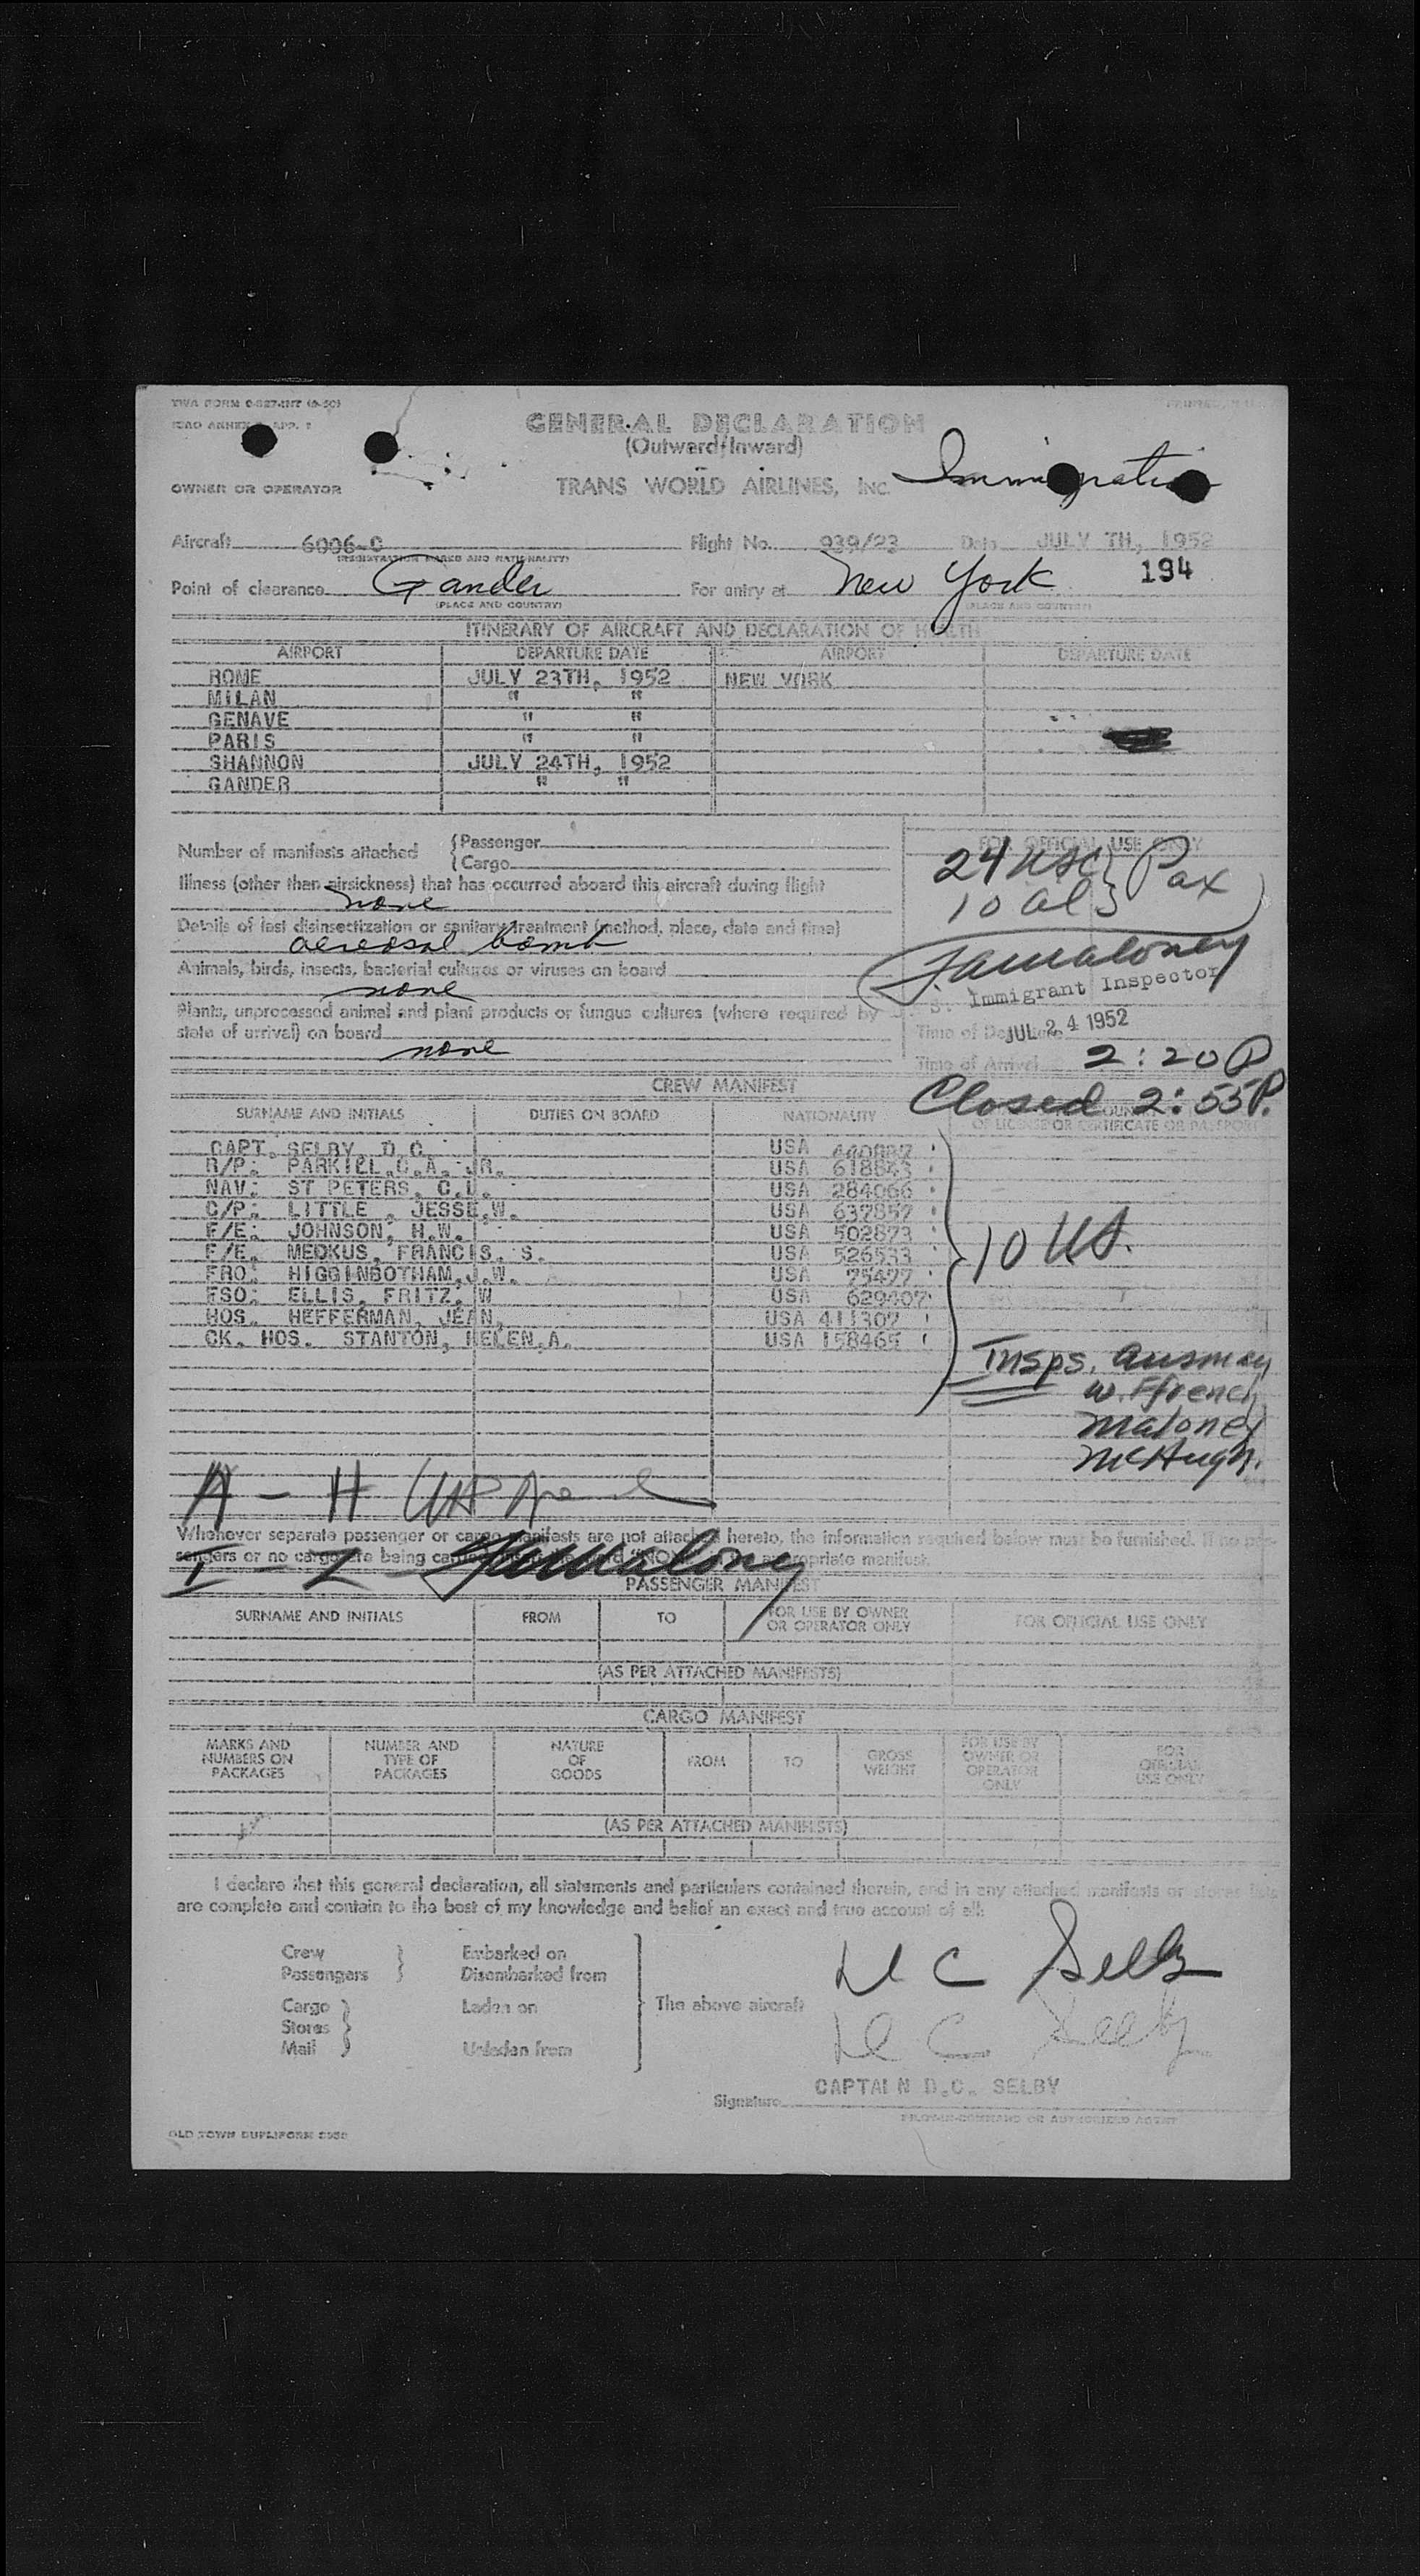 TWA FORM 0-527-INT (6-50)
ICAO ANNEX 9, APP. 1
GENERAL DECLARATION
(Outward/Inward)
OWNER OR OPERATOR
TRANS WORLD AIRLINES, INC.
Immigration
Aircraft 6006-C Flight No. 939/23 Date JULY TH, 1952
(REGISTRATION MARKS AND NATIONALITY)
Point of clearance Gander For entry at New York 194
(PLACE AND COUNTRY) (PLACE AND COUNTRY)
ITINERARY OF AIRCRAFT AND DECLARATION OF HEALTH
AIRPORT DEPARTURE DATE AIRPORT DEPARTURE DATE
ROME JULY 23TH, 1952 NEW YORK
MILAN " "
GENAVE " "
PARIS " "
SHANNON JULY 24TH, 1952
GANDER " "
Number of manifests attached {Passenger
{Cargo
FOR OFFICIAL USE ONLY
24 USC } Pax
10 al }
Illness (other than airsickness) that has occurred aboard this aircraft during flight
none
Details of last disinsectization or sanitary treatment (method, place, date and time)
aereosal bomb
Animals, birds, insects, bacterial cultures or viruses on board
none
Plants, unprocessed animal and plant products or fungus cultures (where required by
state of arrival) on board
none
Famaloney
S. Immigrant Inspector
Time of De JUL 24 1952
Time of Arrival 2:20 P
Closed 2:55 P.
CREW MANIFEST
SURNAME AND INITIALS DUTIES ON BOARD NATIONALITY
OF LICENSE OR CERTIFICATE OR PASSPORT
CAPT. SELBY, D.C. USA
R/P: PARKILL.C.A. JR. USA 618843
NAV: ST PETERS, C.L. USA 284066
C/P: LITTLE , JESSE,W. USA 637857
F/E: JOHNSON, H.W. USA 502873
F/E. MEDKUS, FRANCIS. S. USA 526533
FRO: HIGGINBOTHAM,J.W. USA 75477
FSO: ELLIS, FRITZ, W USA 629407
HOS. HEFFERMAN, JEAN, USA 411307
CK. HOS. STANTON, HELEN,A. USA 158465
10 US.
Insps. Ausman
W. Ffrench
Maloney
McHugh.
A - H
Whenever separate passenger or cargo manifests are not attached hereto, the information required below must be furnished. If no pas-
sengers or no cargo are being carried appropriate manifest.
I - Z - Famaloney
PASSENGER MANIFEST
SURNAME AND INITIALS FROM TO FOR USE BY OWNER OR OPERATOR ONLY FOR OFFICIAL USE ONLY
(AS PER ATTACHED MANIFESTS)
CARGO MANIFEST
MARKS AND NUMBERS ON PACKAGES NUMBER AND TYPE OF PACKAGES NATURE OF GOODS FROM TO GROSS WEIGHT FOR USE BY OWNER OR OPERATOR ONLY FOR OFFICIAL USE ONLY
(AS PER ATTACHED MANIFESTS)
I declare that this general declaration, all statements and particulars contained therein, and in any attached manifests or stores lists
are complete and contain to the best of my knowledge and belief an exact and true account of all:
Crew Embarked on
Passengers Disembarked from
Cargo Laden on
Stores
Mail Unladen from
The above aircraft
D C Selby
D C Selby
CAPTAIN D.C. SELBY
Signature
PILOT-IN-COMMAND OR AUTHORIZED AGENT
OLD TOWN DUPLIFORM